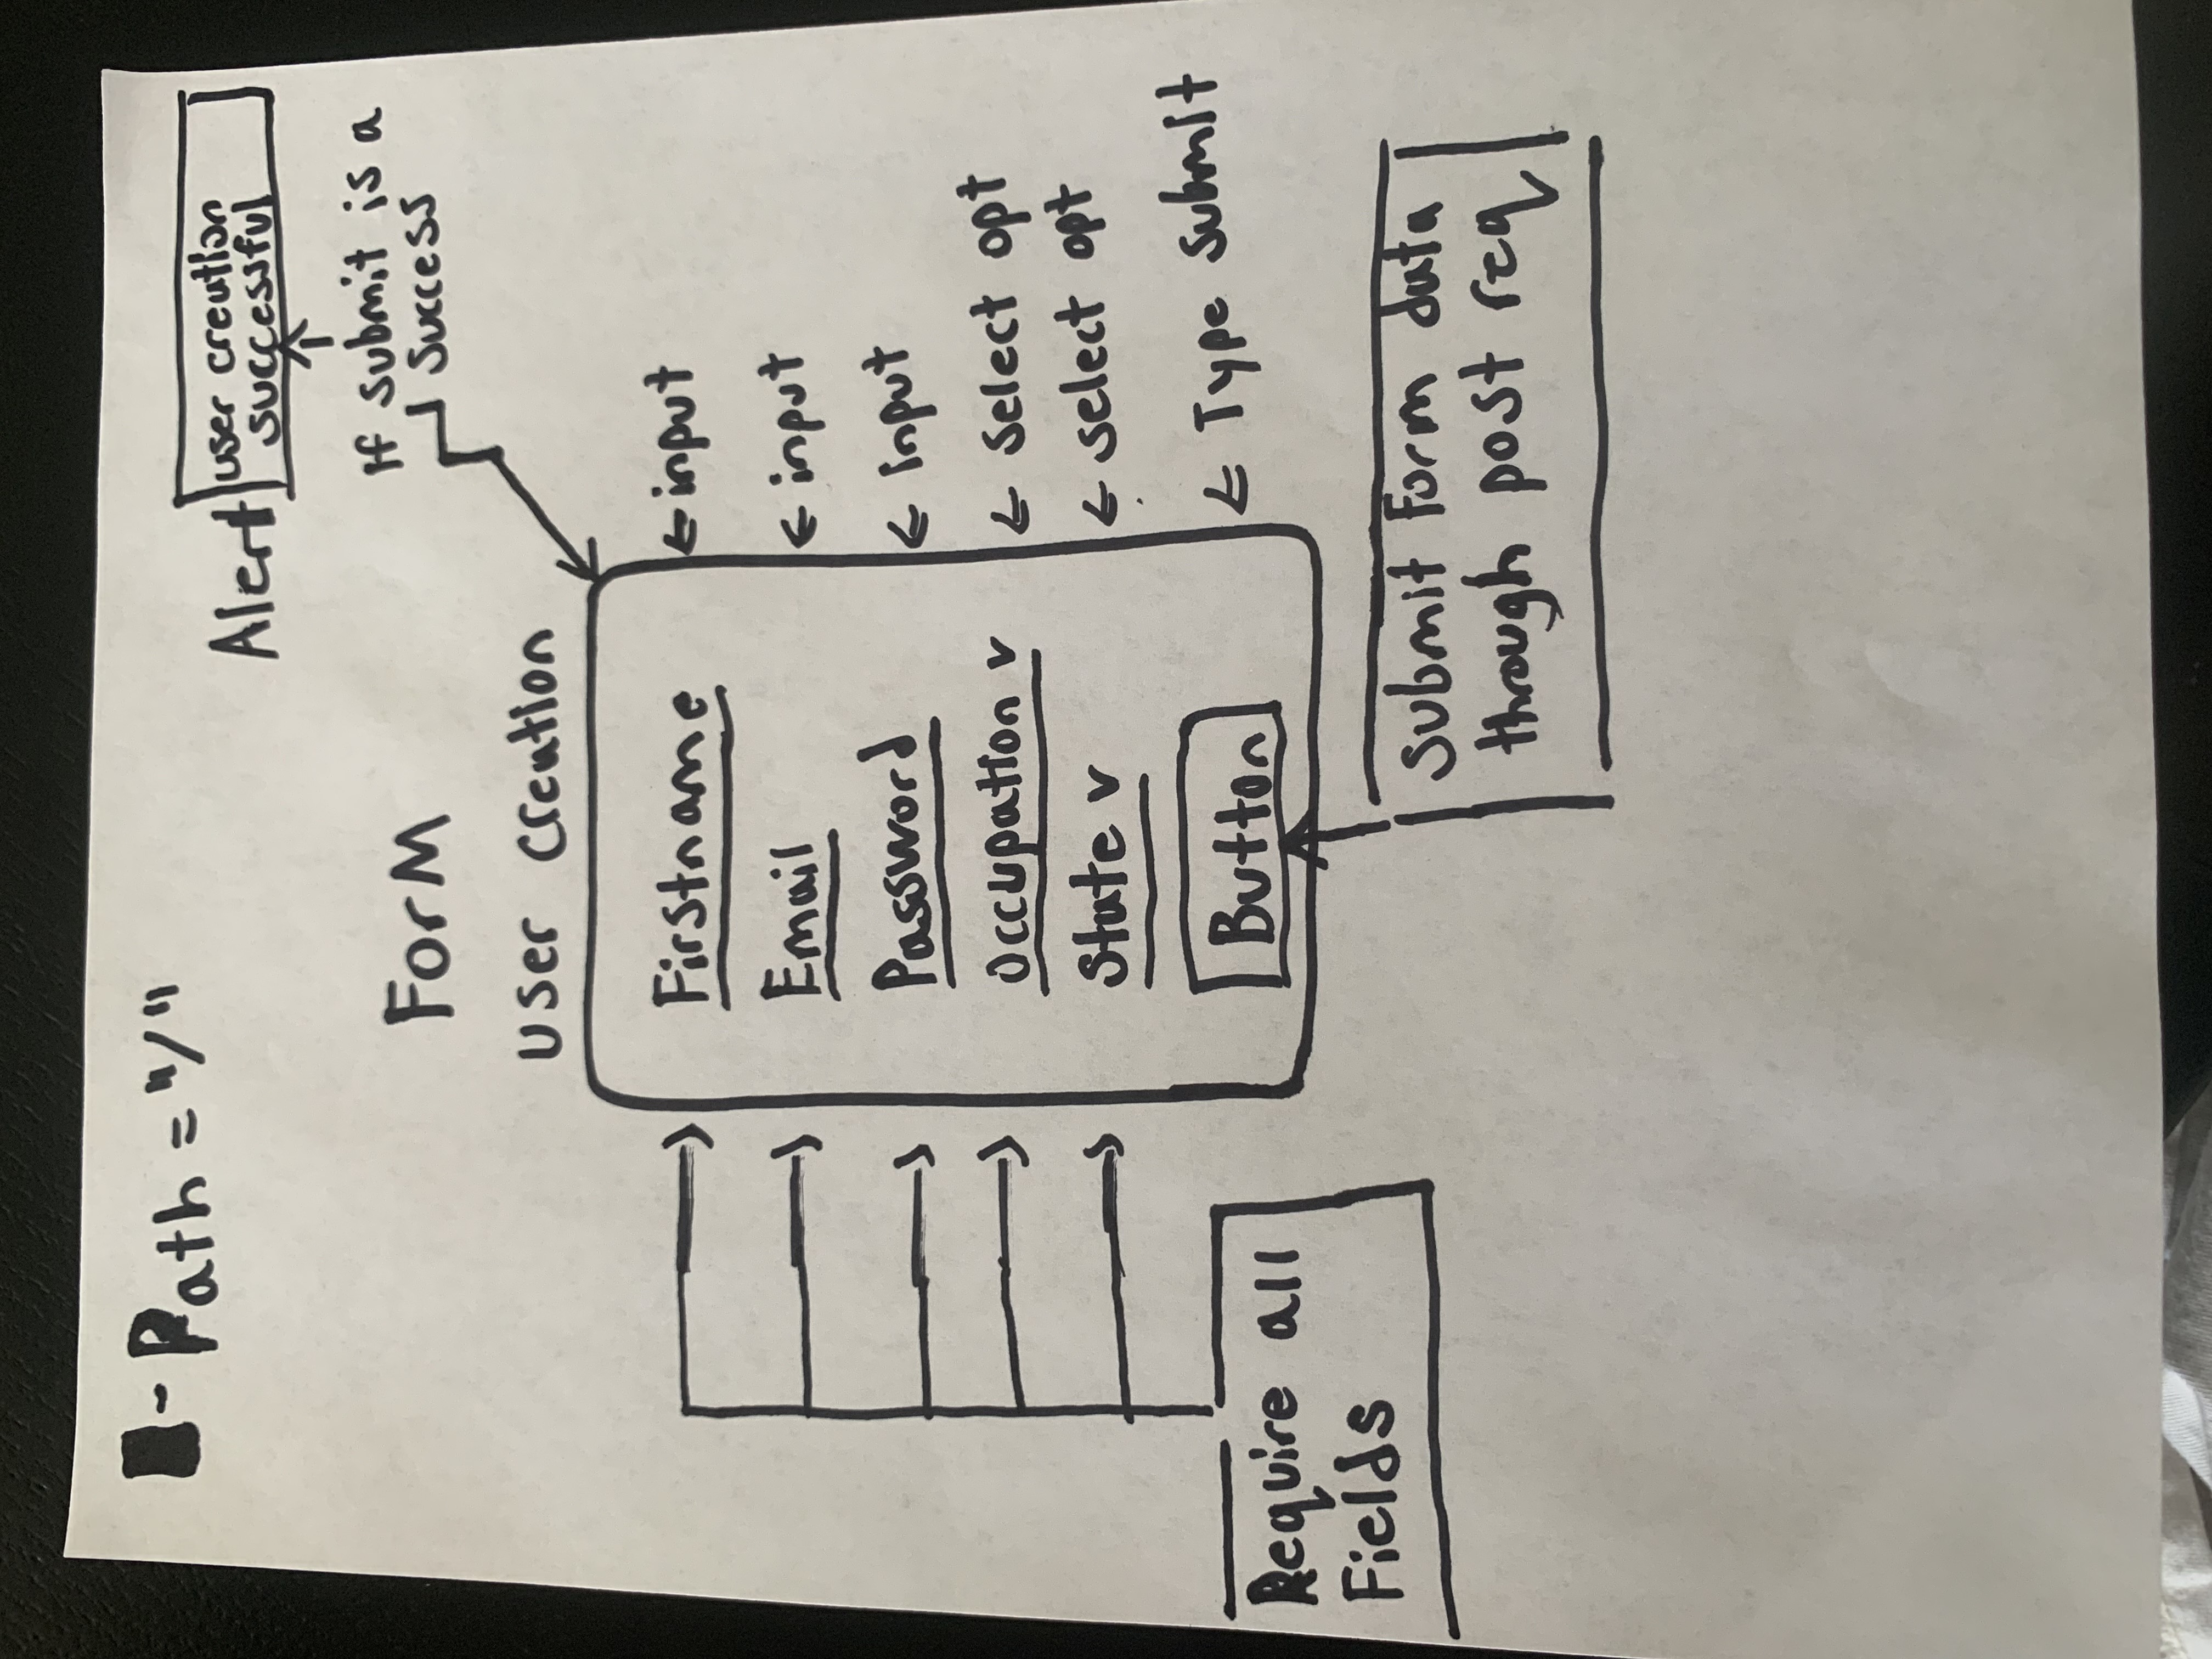 - Path = "/"
Alert user creation
successful
If submit is a
success
Form
user creation
Firstname ← input
Email ← input
Password ← input
occupation v ← select opt
State v ← select opt
Button ← Type submit
Require all
Fields
submit form data
through post req